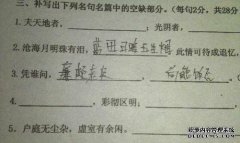 三、补写出下列名句名篇中的空缺部分。(每句2分，共28分
1. 夫天地者，；光阴者，
2. 沧海月明珠有泪，蓝田日暖玉生烟 此情可待成追忆，
3. 凭谁问，廉颇老矣，尚能饭否
4. ，彩彻区明；
5. 户庭无尘杂，虚室有余闲。